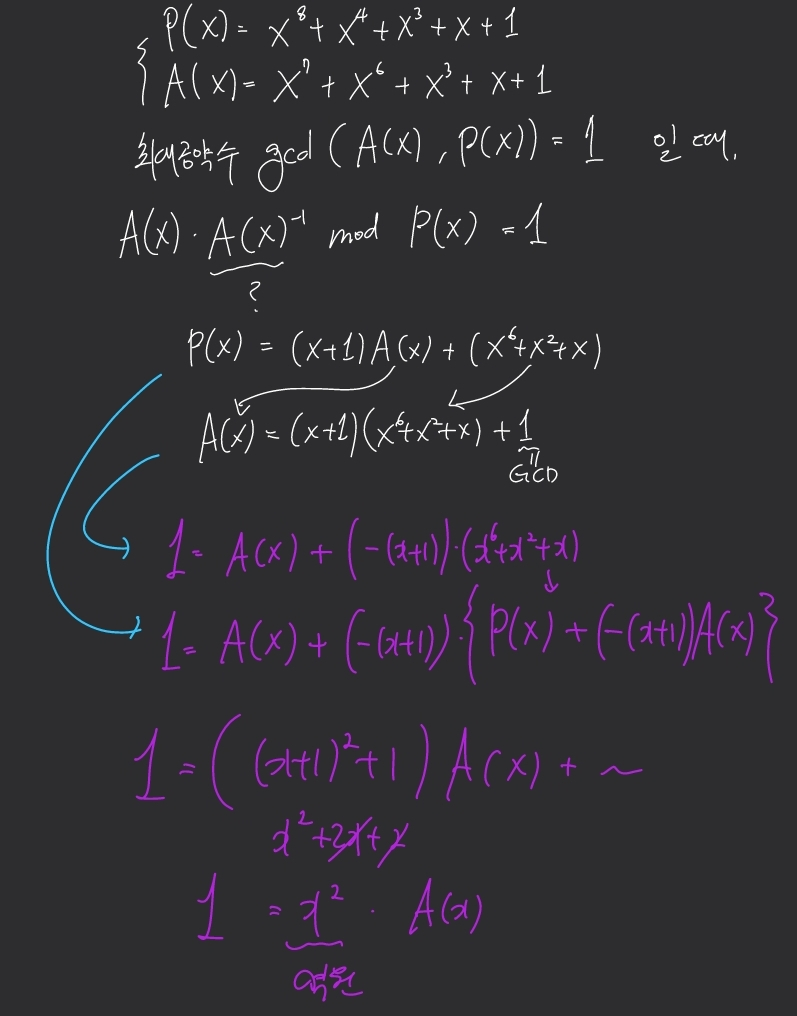 P(x) = x⁸ + x⁴ + x³ + x + 1
A(x) = x⁷ + x⁶ + x³ + x + 1
최대공약수 gcd (A(x), P(x)) = 1 일 때,
A(x) · A(x)⁻¹ mod P(x) = 1
?
P(x) = (x+1)A(x) + (x⁶+x²+x)
A(x) = (x+1)(x⁶+x²+x) + 1
GCD
1 = A(x) + (-(x+1))·(x⁶+x²+x)
1 = A(x) + (-(x+1))·{P(x) + (-(x+1))A(x)}
1 = ((x+1)²+1) A(x) + ~
x²+2x+2
1 = x² · A(x)
역원